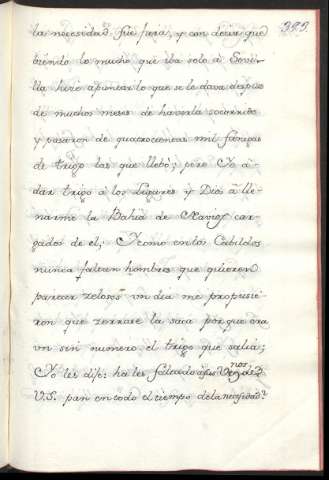 393.
la necesidad fue fuera, y con decir que
viendo lo mucho que iba solo a Sevi-
lla hice apuntar lo que se le dava despues
de muchos meses de haverla socorrido
y pasaron de quatrocientas mil fanegas
de trigo las que llebó; pero Yo á
dar trigo á los Lugares y Dios á lle-
narme la Bahia de Navios car-
gados de el; Y como en los Cabildos
nunca faltan hombres que quieren
parecer zelosos un dia me propusie-
ron que zerrase la saca porque era
un sin numero el trigo que salia;
Yo les dije: ha les faltado á sus Vez.nos de
V.S. pan en todo el tiempo de la necesidad?